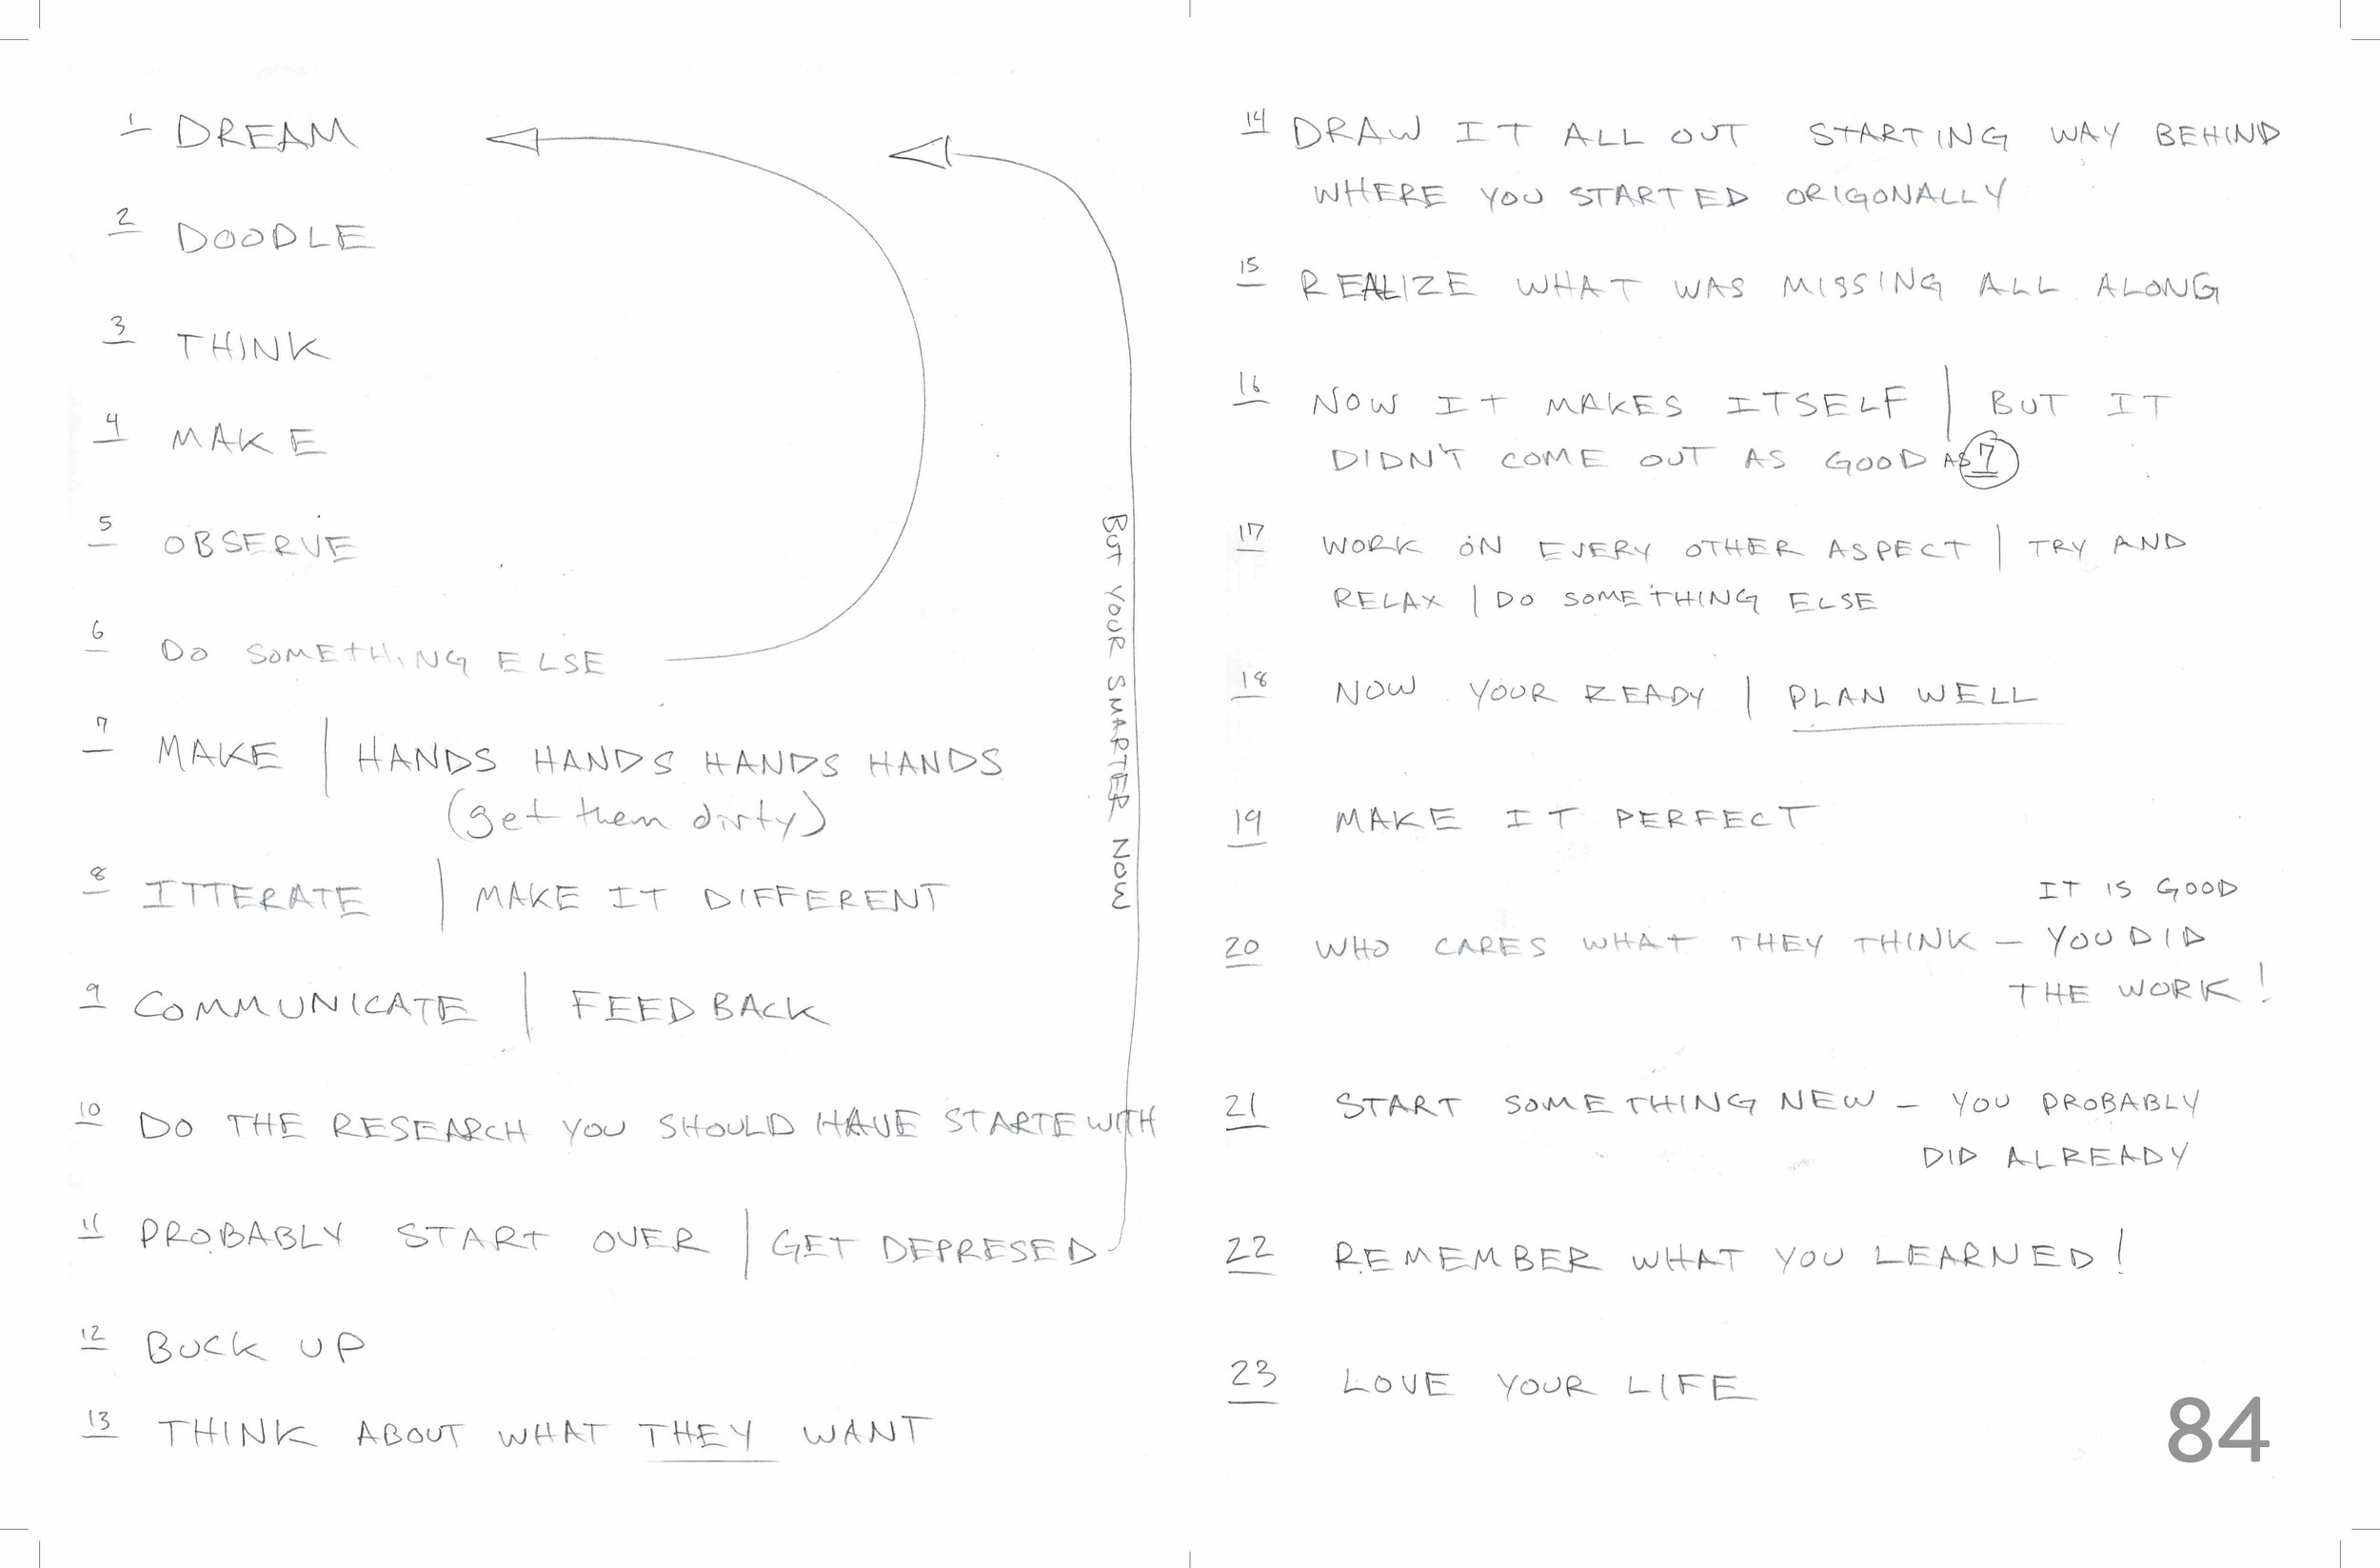 1 DREAM
2 DOODLE
3 THINK
4 MAKE
5 OBSERVE
6 DO SOMETHING ELSE
7 MAKE | HANDS HANDS HANDS HANDS
(get them dirty)
8 ITTERATE | MAKE IT DIFFERENT
9 COMMUNICATE | FEEDBACK
10 DO THE RESEARCH YOU SHOULD HAVE STARTE WITH
11 PROBABLY START OVER | GET DEPRESED
BUT YOUR SMARTER NOW
12 BUCK UP
13 THINK ABOUT WHAT THEY WANT
14 DRAW IT ALL OUT STARTING WAY BEHIND
WHERE YOU STARTED ORIGONALLY
15 REALIZE WHAT WAS MISSING ALL ALONG
16 NOW IT MAKES ITSELF | BUT IT
DIDN'T COME OUT AS GOOD AS 7
17 WORK ON EVERY OTHER ASPECT | TRY AND
RELAX | DO SOMETHING ELSE
18 NOW YOUR READY | PLAN WELL
19 MAKE IT PERFECT
IT IS GOOD
20 WHO CARES WHAT THEY THINK – YOU DID
THE WORK!
21 START SOMETHING NEW – YOU PROBABLY
DID ALREADY
22 REMEMBER WHAT YOU LEARNED!
23 LOVE YOUR LIFE
84